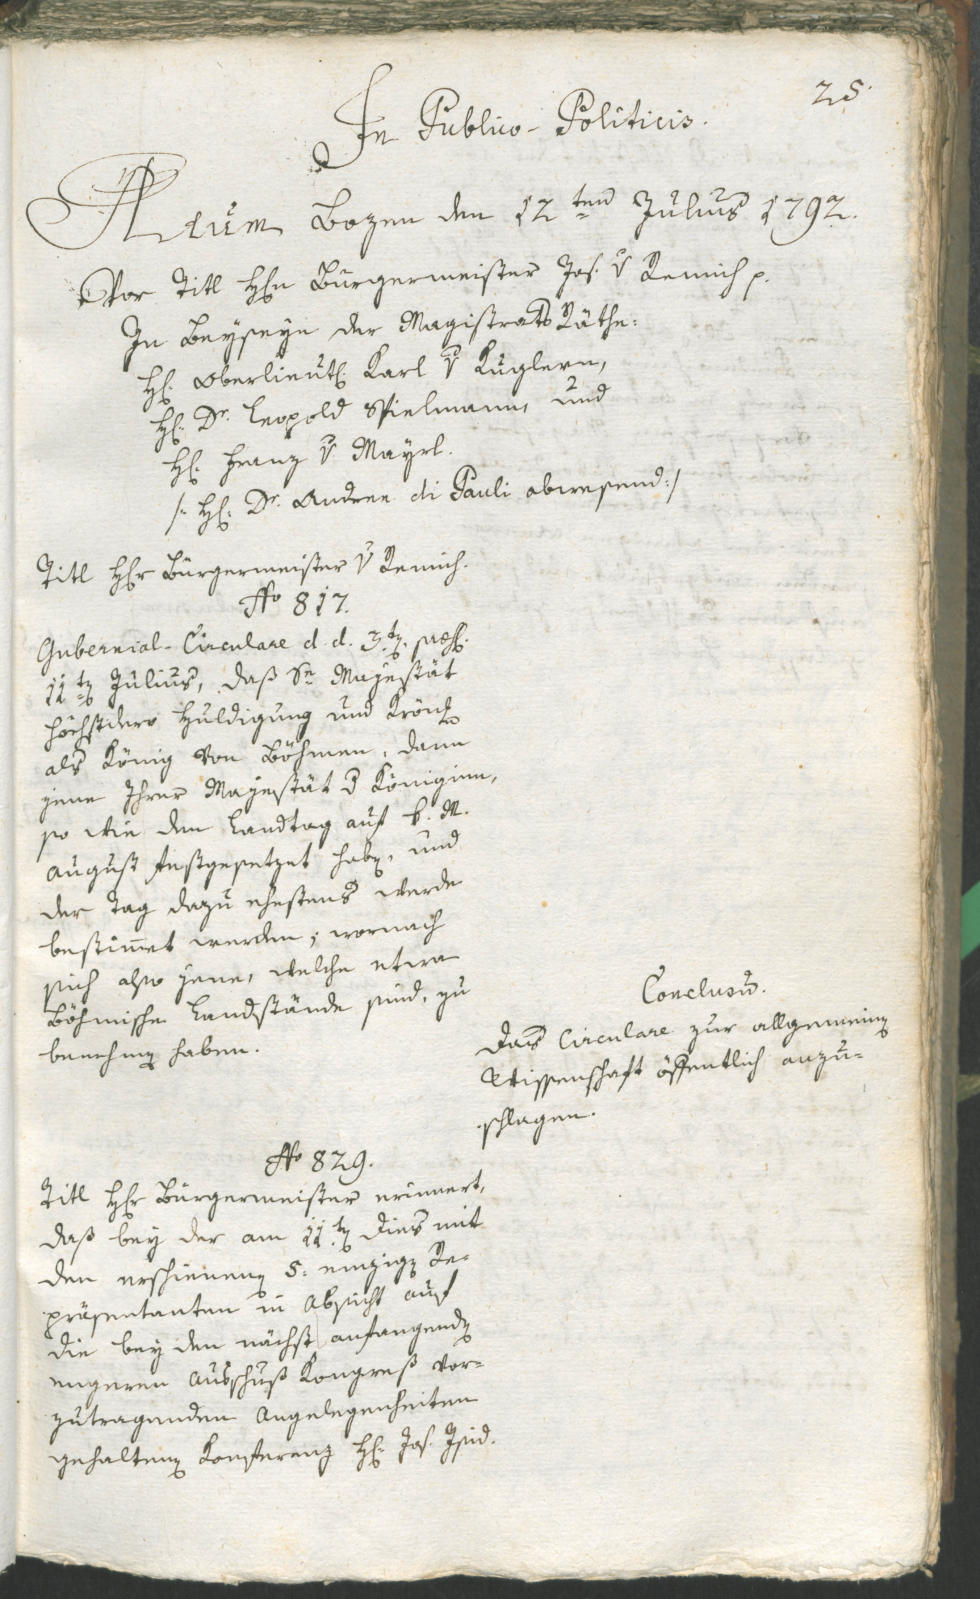 25.
In Publico-Politicis.
Actum Bozen den 12ten Julius 1792.
Vor Titl H̄n Bürgermeister Jos. v Remich p.
In Beyseyn der Magistrats Räthe:
H: Oberlieut: Karl v Kuglern,
H: Dr. Leopold Spielmann, und
H: Franz v Mayrl.
/: H: Dr. Andree di Pauli abwesend :/
Titl Hr Bürgermeister v Remich.
No 817.
Gubernial-Circulare d. d. 3.t, præs.
11t Julius, daß Se Majestät
höchstdero Huldigung und Krönung
als König von Böhmen, dann
jene Ihrer Majestät d Königinn,
so wie den Landtag auf k. M.
August festgesetzet habe, und
der Tag dazu ehestens werde
bestimt werden; wornach
sich also jene, welche etwa
Böhmische Landstände sind, zu
benehmen haben.
Conclusū.
Das Circulare zur allgemeinen
Wissenschaft öffentlich anzu=
schlagen.
No 829.
Titl Hr Bürgermeister erinnert,
daß bey der am 11.t dies mit
den erschienenen 5: einzigen Re=
präsentanten in Absicht auf
die bey den nächst anfangenden
engeren Ausschuß Kongreß vor=
zutragenden Angelegenheiten
gehaltenen Konferenz H: Jos. Isid.